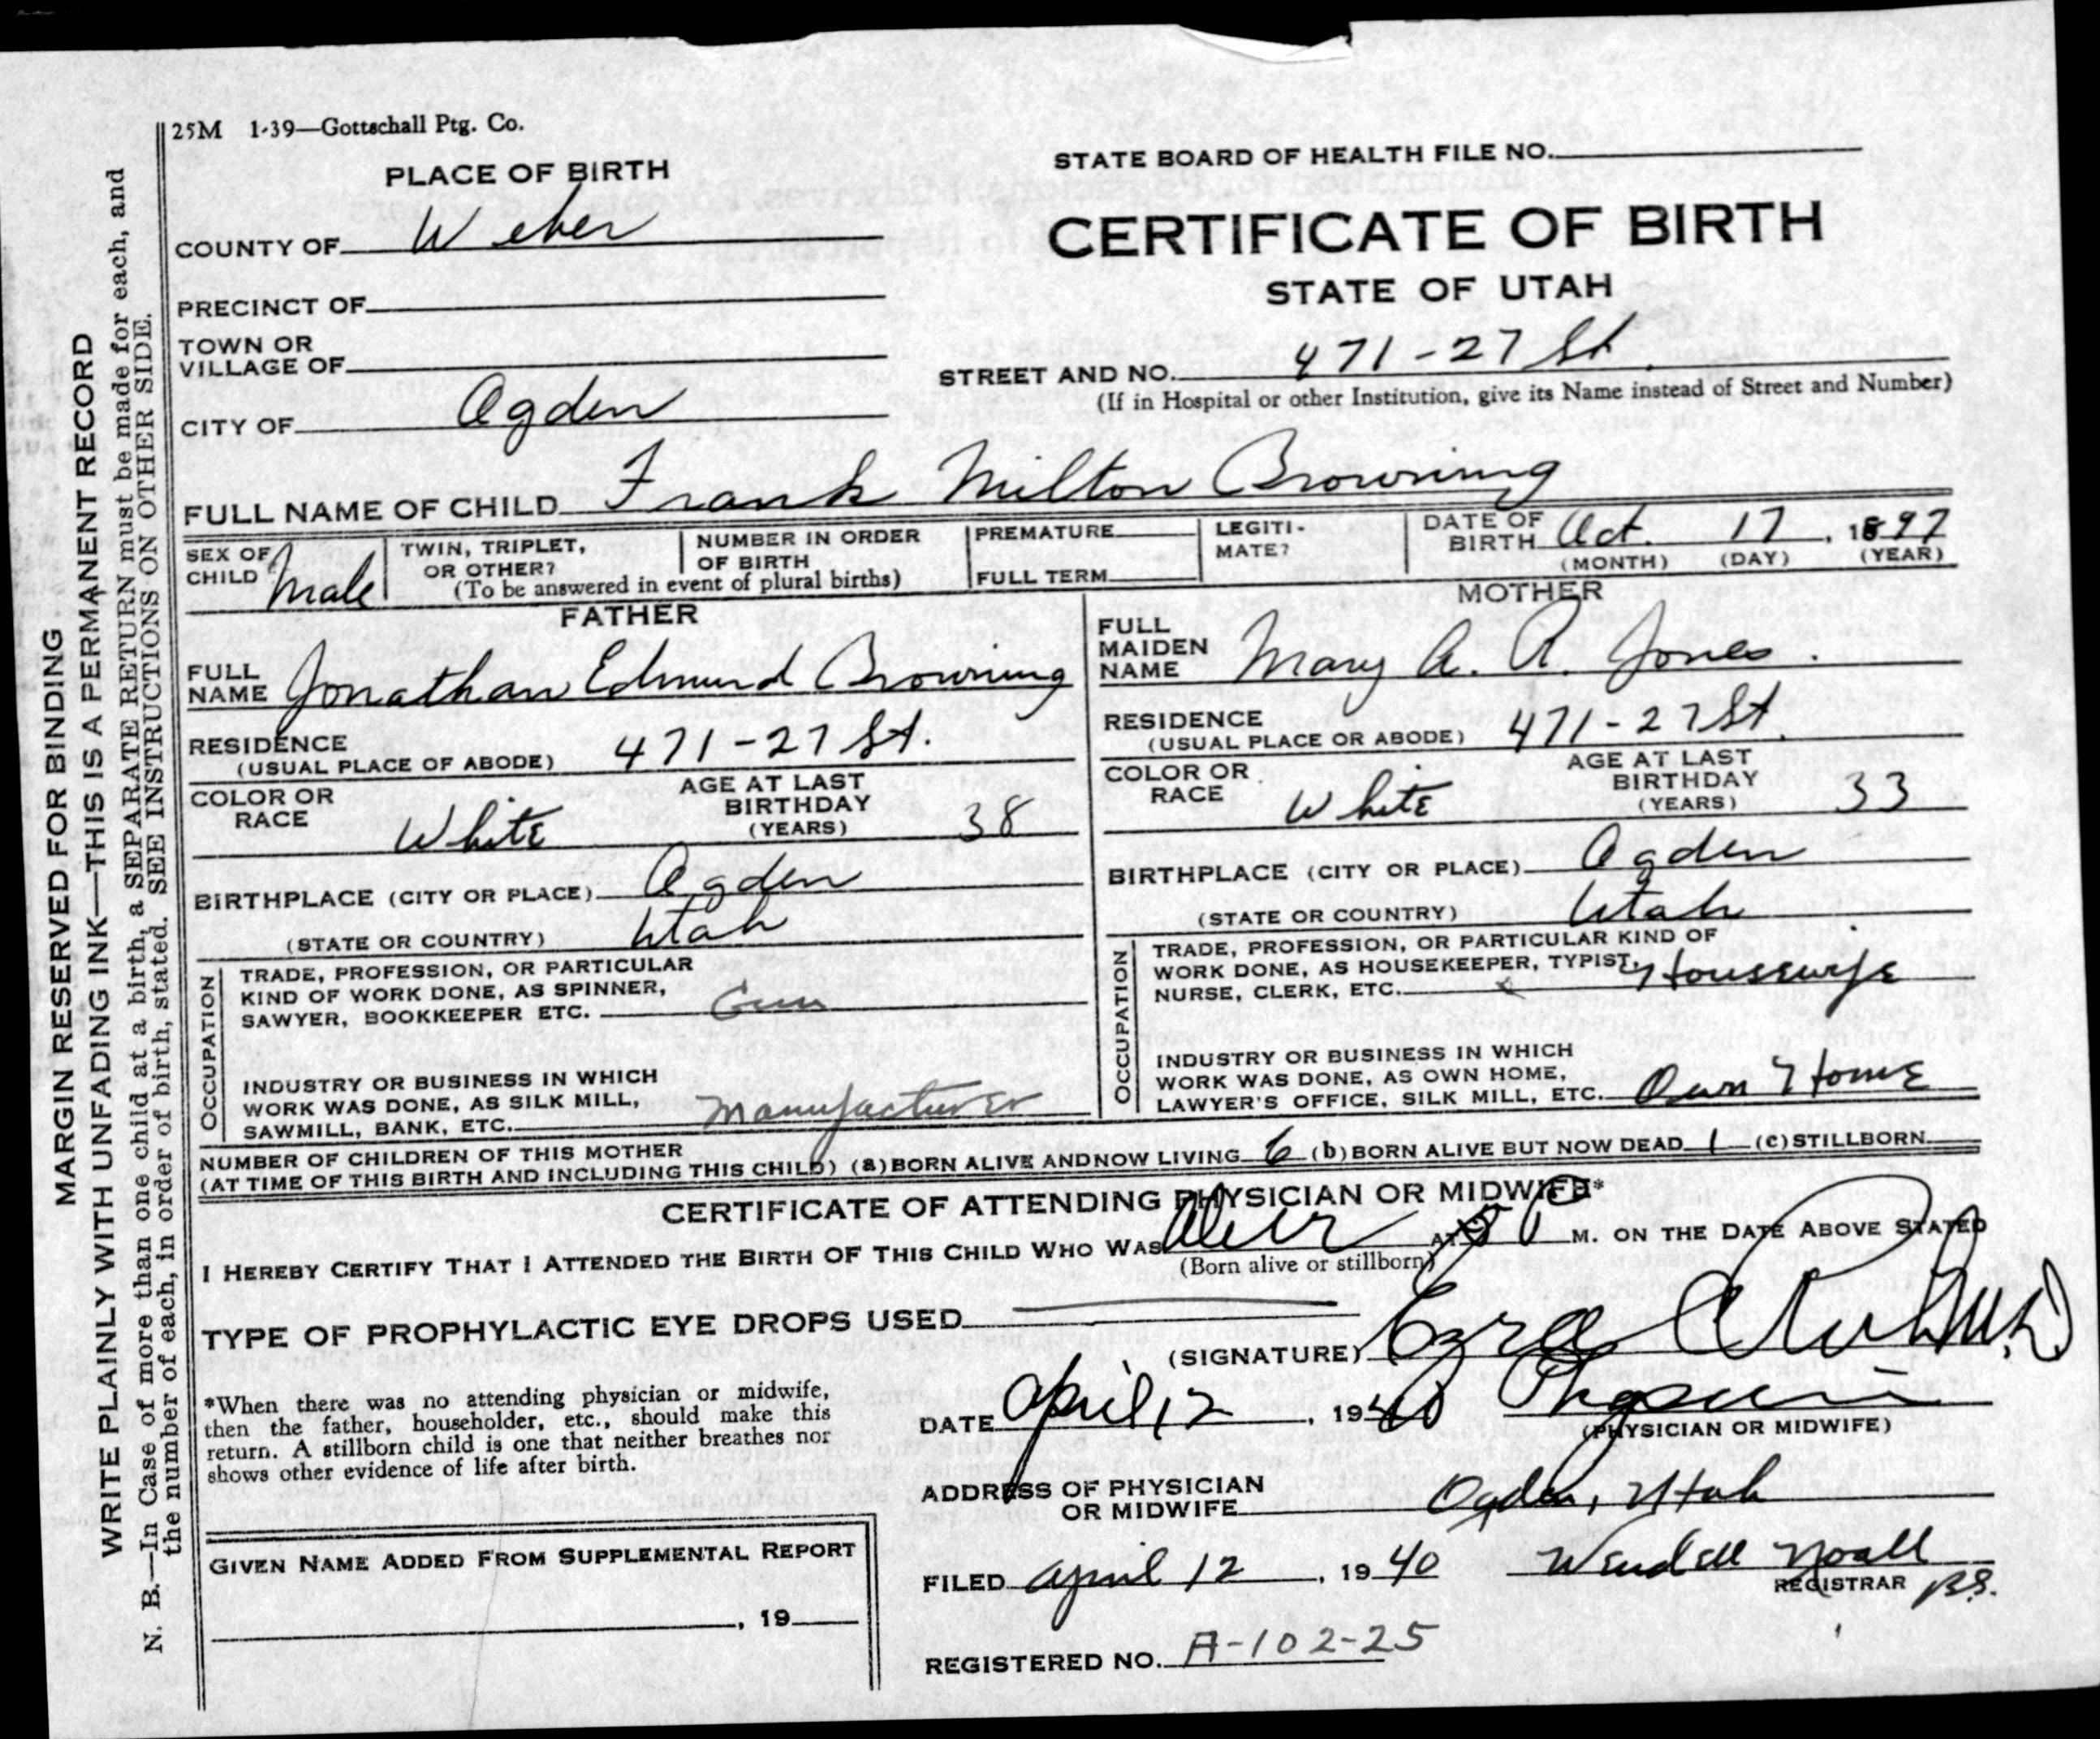 25M 1-39—Gottschall Ptg. Co.
PLACE OF BIRTH
STATE BOARD OF HEALTH FILE NO.
COUNTY OF Weber
CERTIFICATE OF BIRTH
STATE OF UTAH
PRECINCT OF
TOWN OR
VILLAGE OF
STREET AND NO. 471-27 St.
(If in Hospital or other Institution, give its Name instead of Street and Number)
CITY OF Ogden
FULL NAME OF CHILD Frank Milton Browning
SEX OF
CHILD Male
TWIN, TRIPLET,
OR OTHER?
NUMBER IN ORDER
OF BIRTH
(To be answered in event of plural births)
PREMATURE
FULL TERM
LEGITI-
MATE?
DATE OF
BIRTH Oct. 17, 1897
(MONTH) (DAY) (YEAR)
FATHER
FULL
NAME Jonathan Edmund Browning
RESIDENCE
(USUAL PLACE OF ABODE) 471-27 St.
COLOR OR
RACE White
AGE AT LAST
BIRTHDAY
(YEARS) 38
BIRTHPLACE (CITY OR PLACE) Ogden
(STATE OR COUNTRY) Utah
OCCUPATION
TRADE, PROFESSION, OR PARTICULAR
KIND OF WORK DONE, AS SPINNER,
SAWYER, BOOKKEEPER ETC. Gun
INDUSTRY OR BUSINESS IN WHICH
WORK WAS DONE, AS SILK MILL,
SAWMILL, BANK, ETC. Manufacturer
MOTHER
FULL
MAIDEN
NAME Mary A. R. Jones.
RESIDENCE
(USUAL PLACE OR ABODE) 471-27 St.
COLOR OR
RACE White
AGE AT LAST
BIRTHDAY
(YEARS) 33
BIRTHPLACE (CITY OR PLACE) Ogden
(STATE OR COUNTRY) Utah
OCCUPATION
TRADE, PROFESSION, OR PARTICULAR KIND OF
WORK DONE, AS HOUSEKEEPER, TYPIST,
NURSE, CLERK, ETC. Housewife
INDUSTRY OR BUSINESS IN WHICH
WORK WAS DONE, AS OWN HOME,
LAWYER'S OFFICE, SILK MILL, ETC. Own Home
NUMBER OF CHILDREN OF THIS MOTHER
(AT TIME OF THIS BIRTH AND INCLUDING THIS CHILD) (a) BORN ALIVE AND NOW LIVING 6 (b) BORN ALIVE BUT NOW DEAD 1 (c) STILLBORN
CERTIFICATE OF ATTENDING PHYSICIAN OR MIDWIFE*
I HEREBY CERTIFY THAT I ATTENDED THE BIRTH OF THIS CHILD WHO WAS AT P M. ON THE DATE ABOVE STATED
(Born alive or stillborn)
TYPE OF PROPHYLACTIC EYE DROPS USED
(SIGNATURE) Ezra C Rich M.D
*When there was no attending physician or midwife,
then the father, householder, etc., should make this
return. A stillborn child is one that neither breathes nor
shows other evidence of life after birth.
DATE April 12, 1940 Physician
(PHYSICIAN OR MIDWIFE)
ADDRESS OF PHYSICIAN
OR MIDWIFE Ogden, Utah
GIVEN NAME ADDED FROM SUPPLEMENTAL REPORT
, 19
FILED April 12, 1940 Wendell Noall
REGISTRAR B.S.
REGISTERED NO. A-102-25
MARGIN RESERVED FOR BINDING
WRITE PLAINLY WITH UNFADING INK—THIS IS A PERMANENT RECORD
N. B.—In Case of more than one child at a birth, a SEPARATE RETURN must be made for each, and
the number of each, in order of birth, stated. SEE INSTRUCTIONS ON OTHER SIDE.